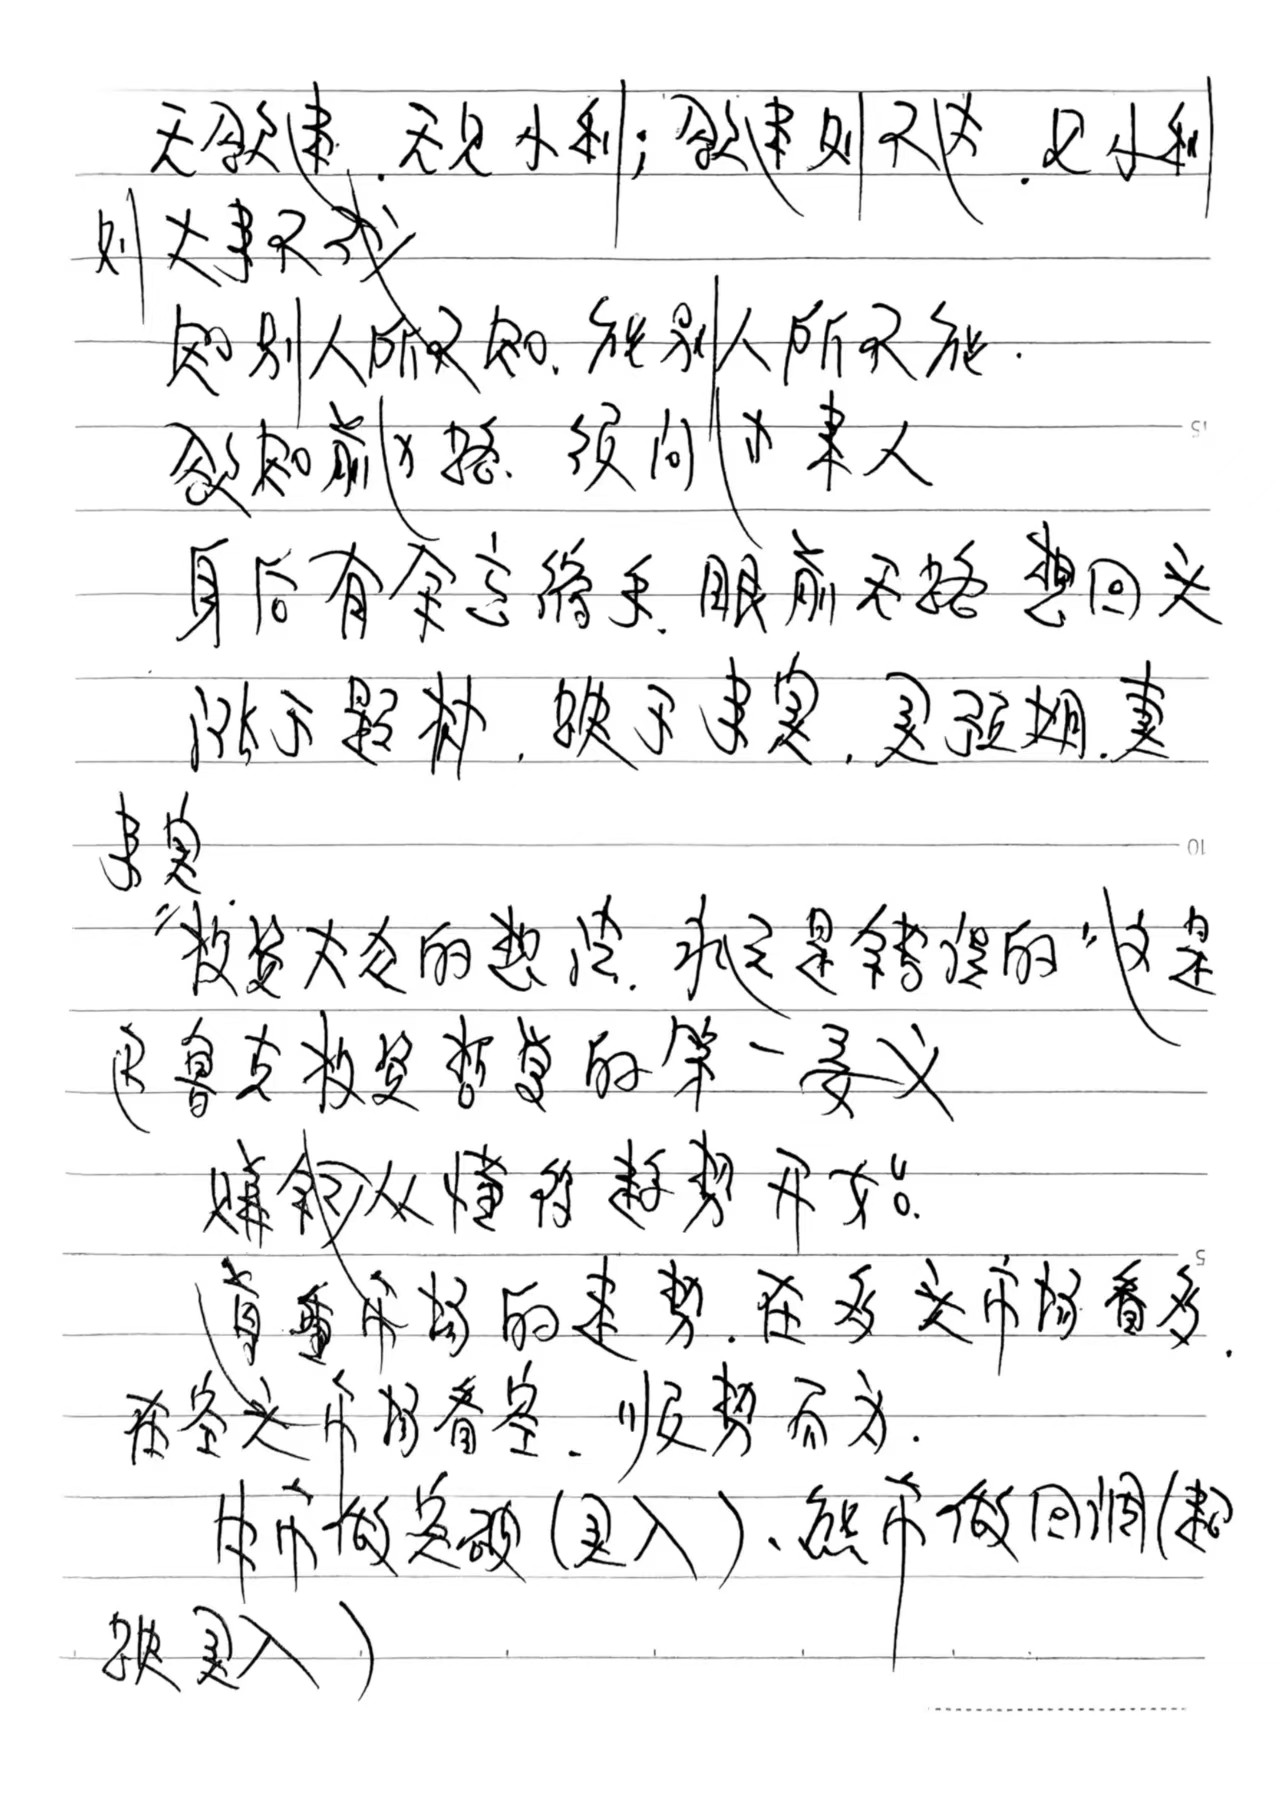 无欲速，无见小利；欲速则不达，见小利
则大事不成
知别人所不知，能别人所不能．
欲知前边路，须问过来人
身后有余忘缩手，眼前无路想回头
涨于题材，跌于事实，买预期，卖
事实
“投资大众的想法，永远是错误的”这是
巴鲁克投资哲学的第一要义
赚钱从懂得趋势开始。
首看市场的走势，在多头市场看多，
在空头市场看空，顺势而为．
牛市做突破（买入），熊市做回调（超
跌买入）
15
10
5